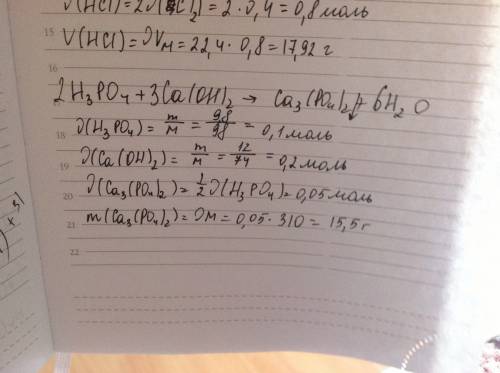 ν(HCl)=2ν(Cl₂)=2·0,4=0,8моль
15 V(HCl)=νVм=22,4·0,8=17,92 г
16
2H₃PO₄+3Ca(OH)₂→ Ca₃(PO₄)₂↓+6H₂O
18 ν(H₃PO₄)=m/м=9,8/98=0,1моль
19 ν(Ca(OH)₂)=m/м=12/74=0,2моль
20 ν(Ca₃(PO₄)₂)=1/2ν(H₃PO₄)=0,05моль
21 m(Ca₃(PO₄)₂)=νM=0,05·310=15,5г
22